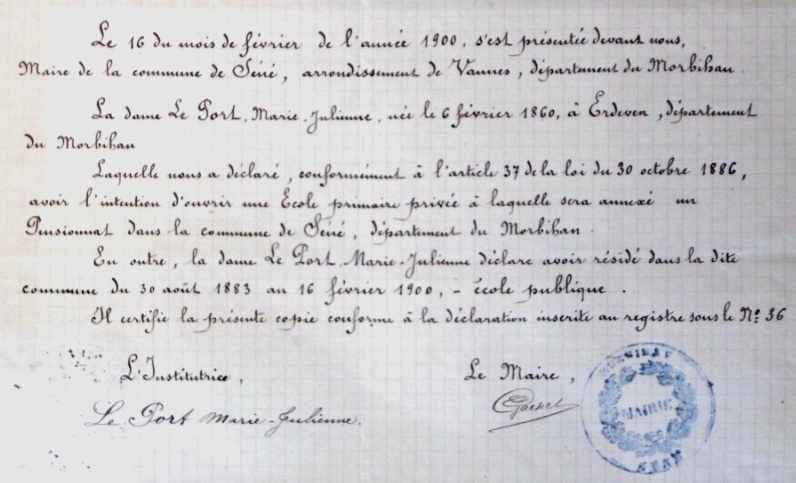 Le 16 du mois de février de l'année 1900, s'est présentée devant nous,
Maire de la commune de Séné, arrondissement de Vannes, département du Morbihan.
La dame Le Port, Marie-Julienne, née le 6 février 1860, à Erdeven, département
du Morbihan
Laquelle nous a déclaré, conformément à l'article 37 de la loi du 30 octobre 1886,
avoir l'intention d'ouvrir une École primaire privée à laquelle sera annexé un
Pensionnat dans la commune de Séné, département du Morbihan.
En outre, la dame Le Port, Marie-Julienne déclare avoir résidé dans la dite
commune du 30 août 1883 au 16 février 1900, - école publique.
Il certifie la présente copie conforme à la déclaration inscrite au registre sous le No. 36
L'Institutrice,
Le Maire,
Le Port Marie-Julienne.
MORBIHAN
MAIRIE
SÉNÉ